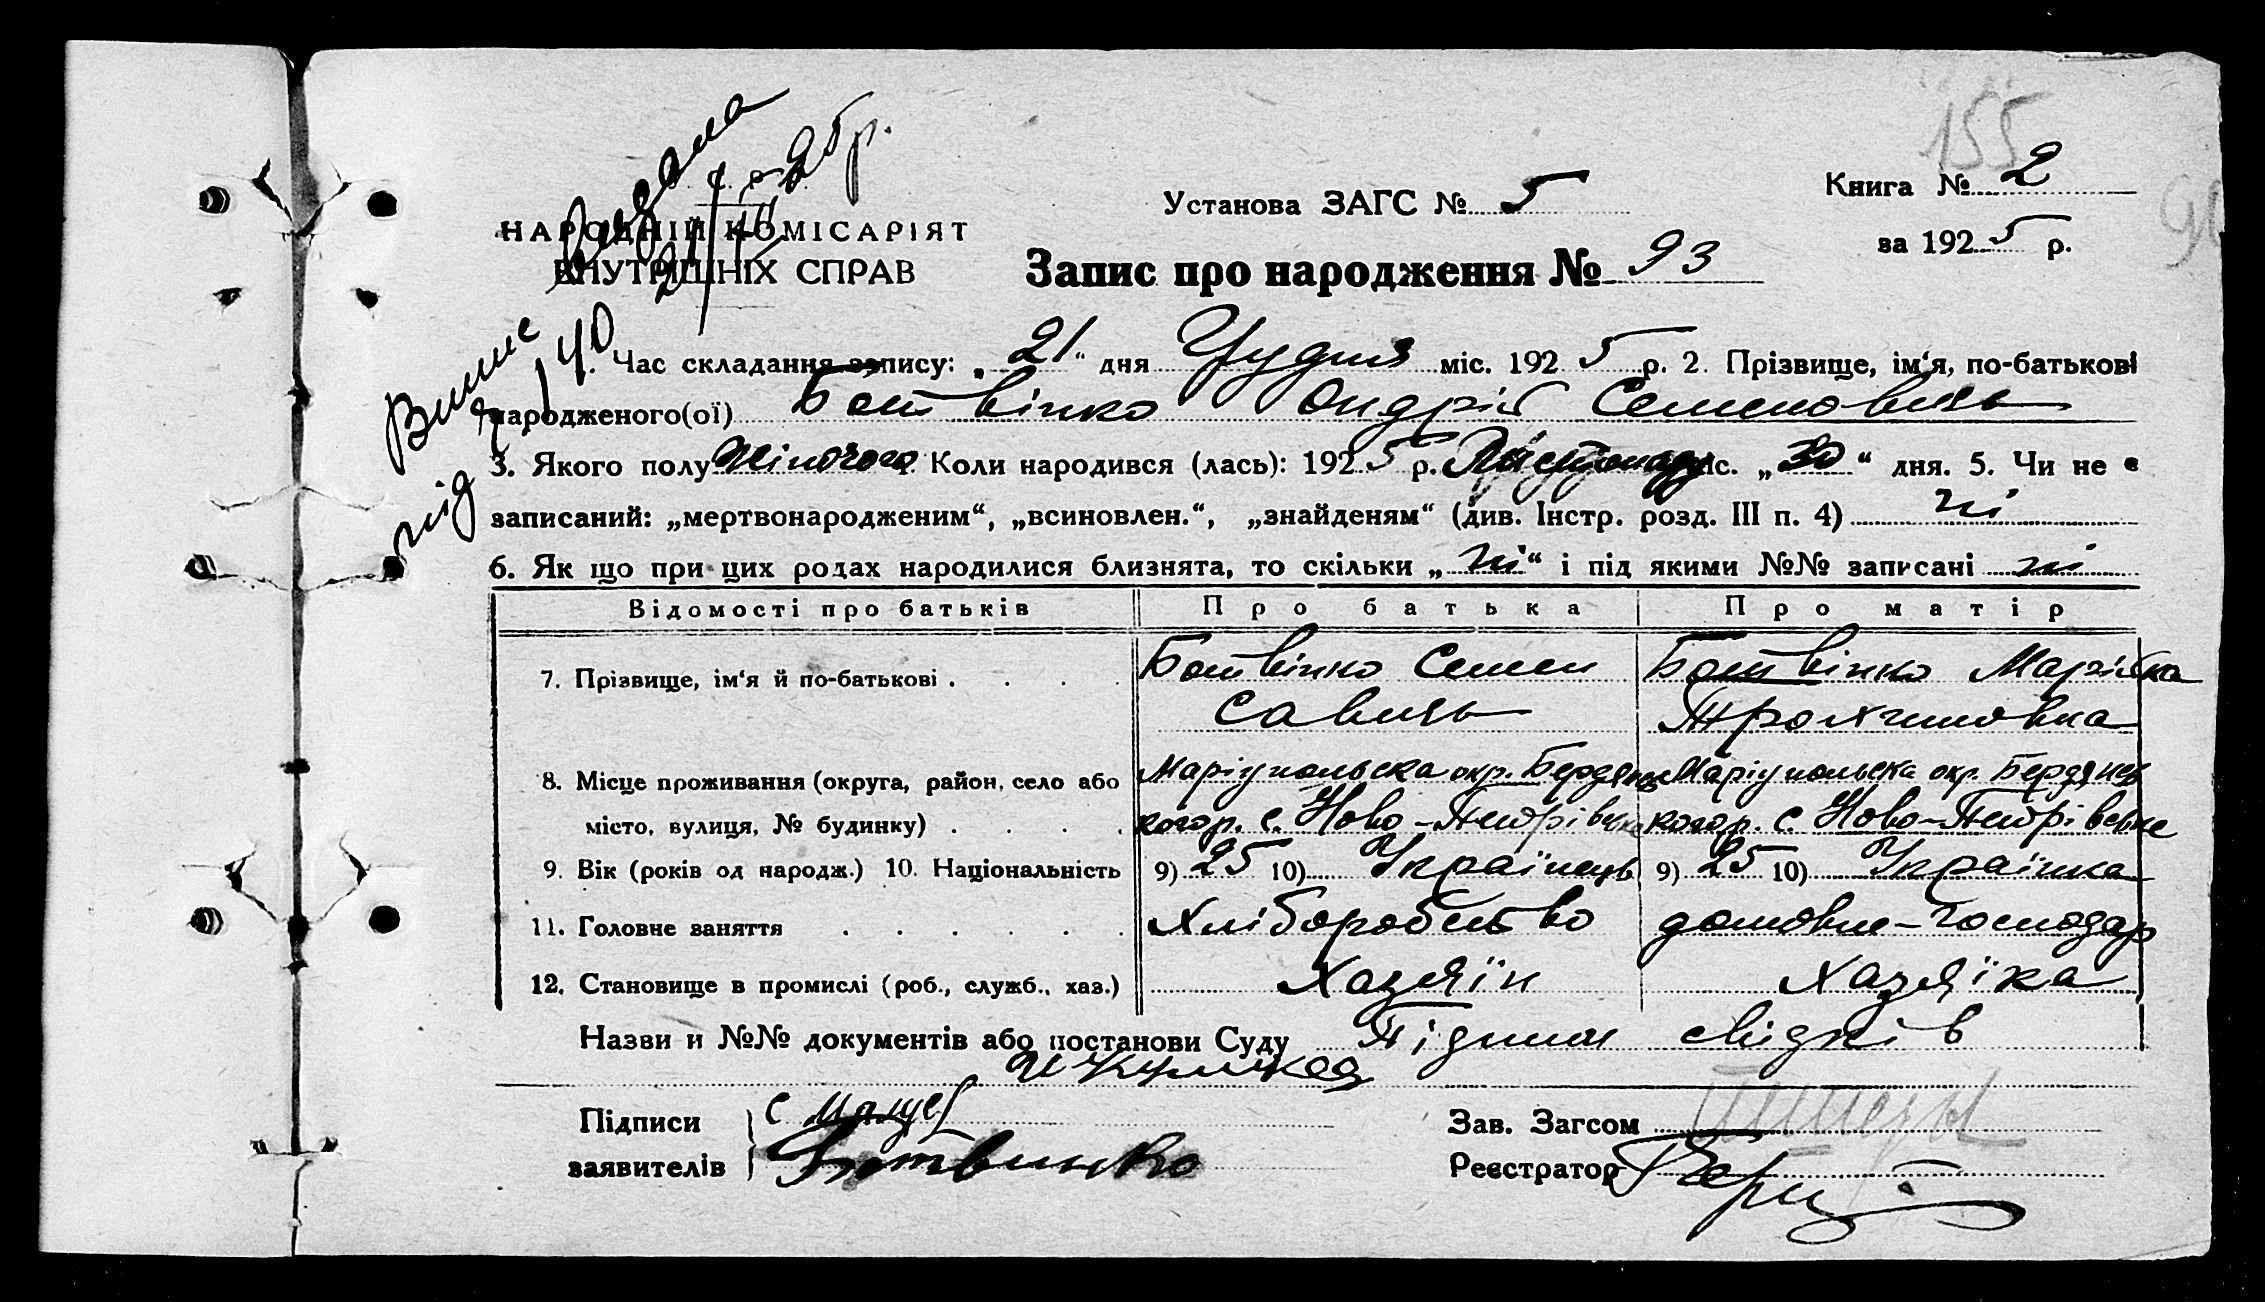 155
Видана
21/XII-25р.
У. С. Р. Р.
НАРОДНІЙ КОМІСАРІЯТ
ВНУТРІШНІХ СПРАВ
Установа ЗАГС № 5
Книга № 2
за 1925 р.
Запис про народження № 93
Випис
під
140
1. Час складання запису: „21“ дня Грудня міс. 1925 р. 2. Прізвище, ім‘я, по-батькові
народженого(ої) Ботвінко Ондрій Семенович
3. Якого полу Жіночого Коли народився (лась): 1925 р. Листопаду міс. „30“ дня. 5. Чи не є
записаний: „мертвонародженим“, „всиновлен.“, „знайденям“ (див. Інстр. розд. III п. 4) ні
6. Як що при цих родах народилися близнята, то скільки „ні“ і під якими №№ записані ні
Відомості про батьків Про батька Про матір
7. Прізвище, ім‘я й по-батькові . . . . Ботвінко Семен Ботвінко Марійка
Савичь
8. Місце проживання (округа, район, село або Маріупольська окр. Бердянс Маріупольська окр. Бердянсь
місто, вулиця, № будинку) . . . . кого р. с. Ново-Петрівське кого р. с. Ново-Петрівське
9. Вік (років од народж.) 10. Національність 9) 25 10) Українець 9) 25 10) Українка
11. Головне заняття . . . . . . Хліборобство домовне-господар
12. Становище в промислі (роб., служб., хаз.) Хазяїн Хазяїка
Назви и №№ документів або постанови Суду Підпис свідків
Підписи
заявителів
Ботвинько
Зав. Загсом
Реєстратор